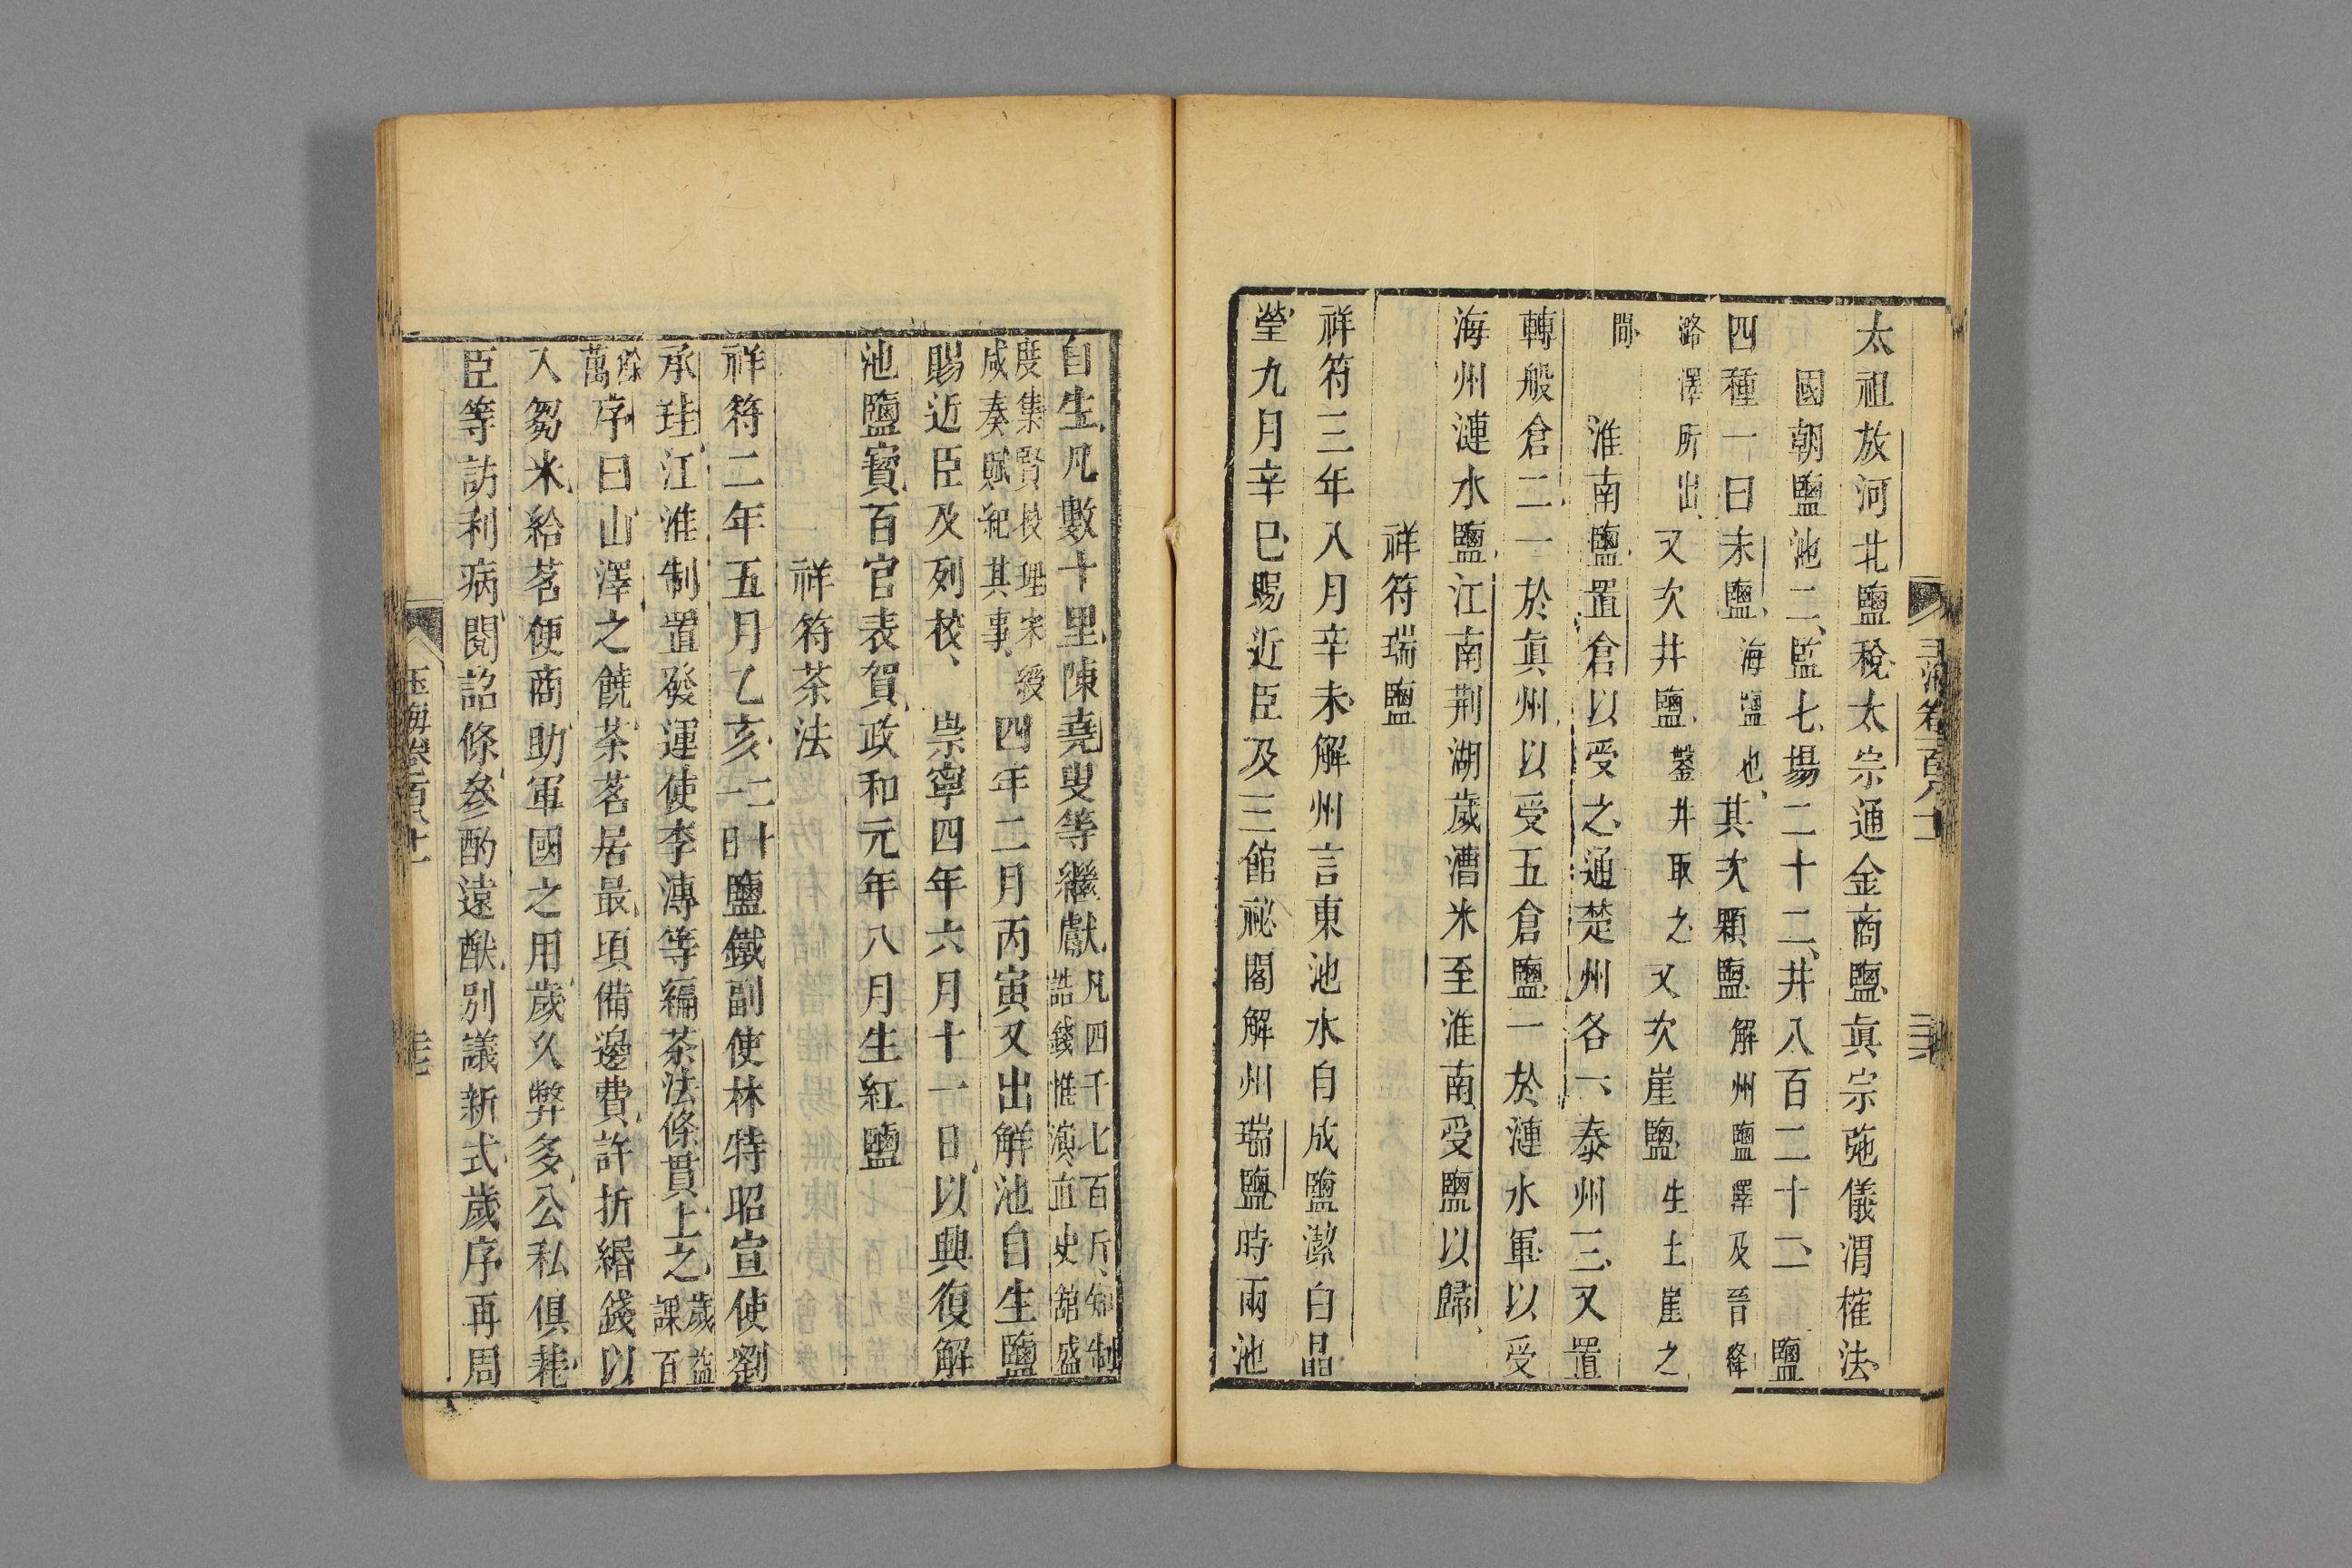 太祖放河北鹽稅太宗通金商鹽真宗弛儀渭榷法
國朝鹽池二監七場二十二井八百二十二 鹽
四種一曰末鹽海鹽也其次顆鹽解州鹽澤及晉絳
潞澤所出又次井鹽鑿井取之又次崖鹽生土崖之
間 淮南鹽置倉以受之通楚州各一泰州三又置
轉般倉二一於真州以受五倉鹽一於漣水軍以受
海州漣水鹽江南荆湖歲漕米至淮南受鹽以歸
祥符瑞鹽
祥符三年八月辛未解州言東池水自成鹽潔白晶
瑩九月辛巳賜近臣及三館祕閣解州瑞鹽時兩池
玉海卷一百八十一
自生凡數十里陳堯叟等繼獻凡四千七百斤知制
誥錢惟演直史館盛
度集賢校理宋綬
咸奏賦紀其事四年二月丙寅又出解池自生鹽
賜近臣及列校 崇寧四年六月十一日以興復解
池鹽寶百官表賀政和元年八月生紅鹽
祥符茶法
祥符二年五月乙亥二十一日鹽鐵副使林特昭宣使劉
承珪江淮制置發運使李溥等編茶法條貫上之歲益
課百
餘
萬序曰山澤之饒茶茗居最頃備邊費許折緡錢以
入芻米給茗便商助軍國之用歲久弊多公私俱耗
臣等訪利病閱詔條參酌遠猷別議新式歲序再周
玉海卷一百八十一